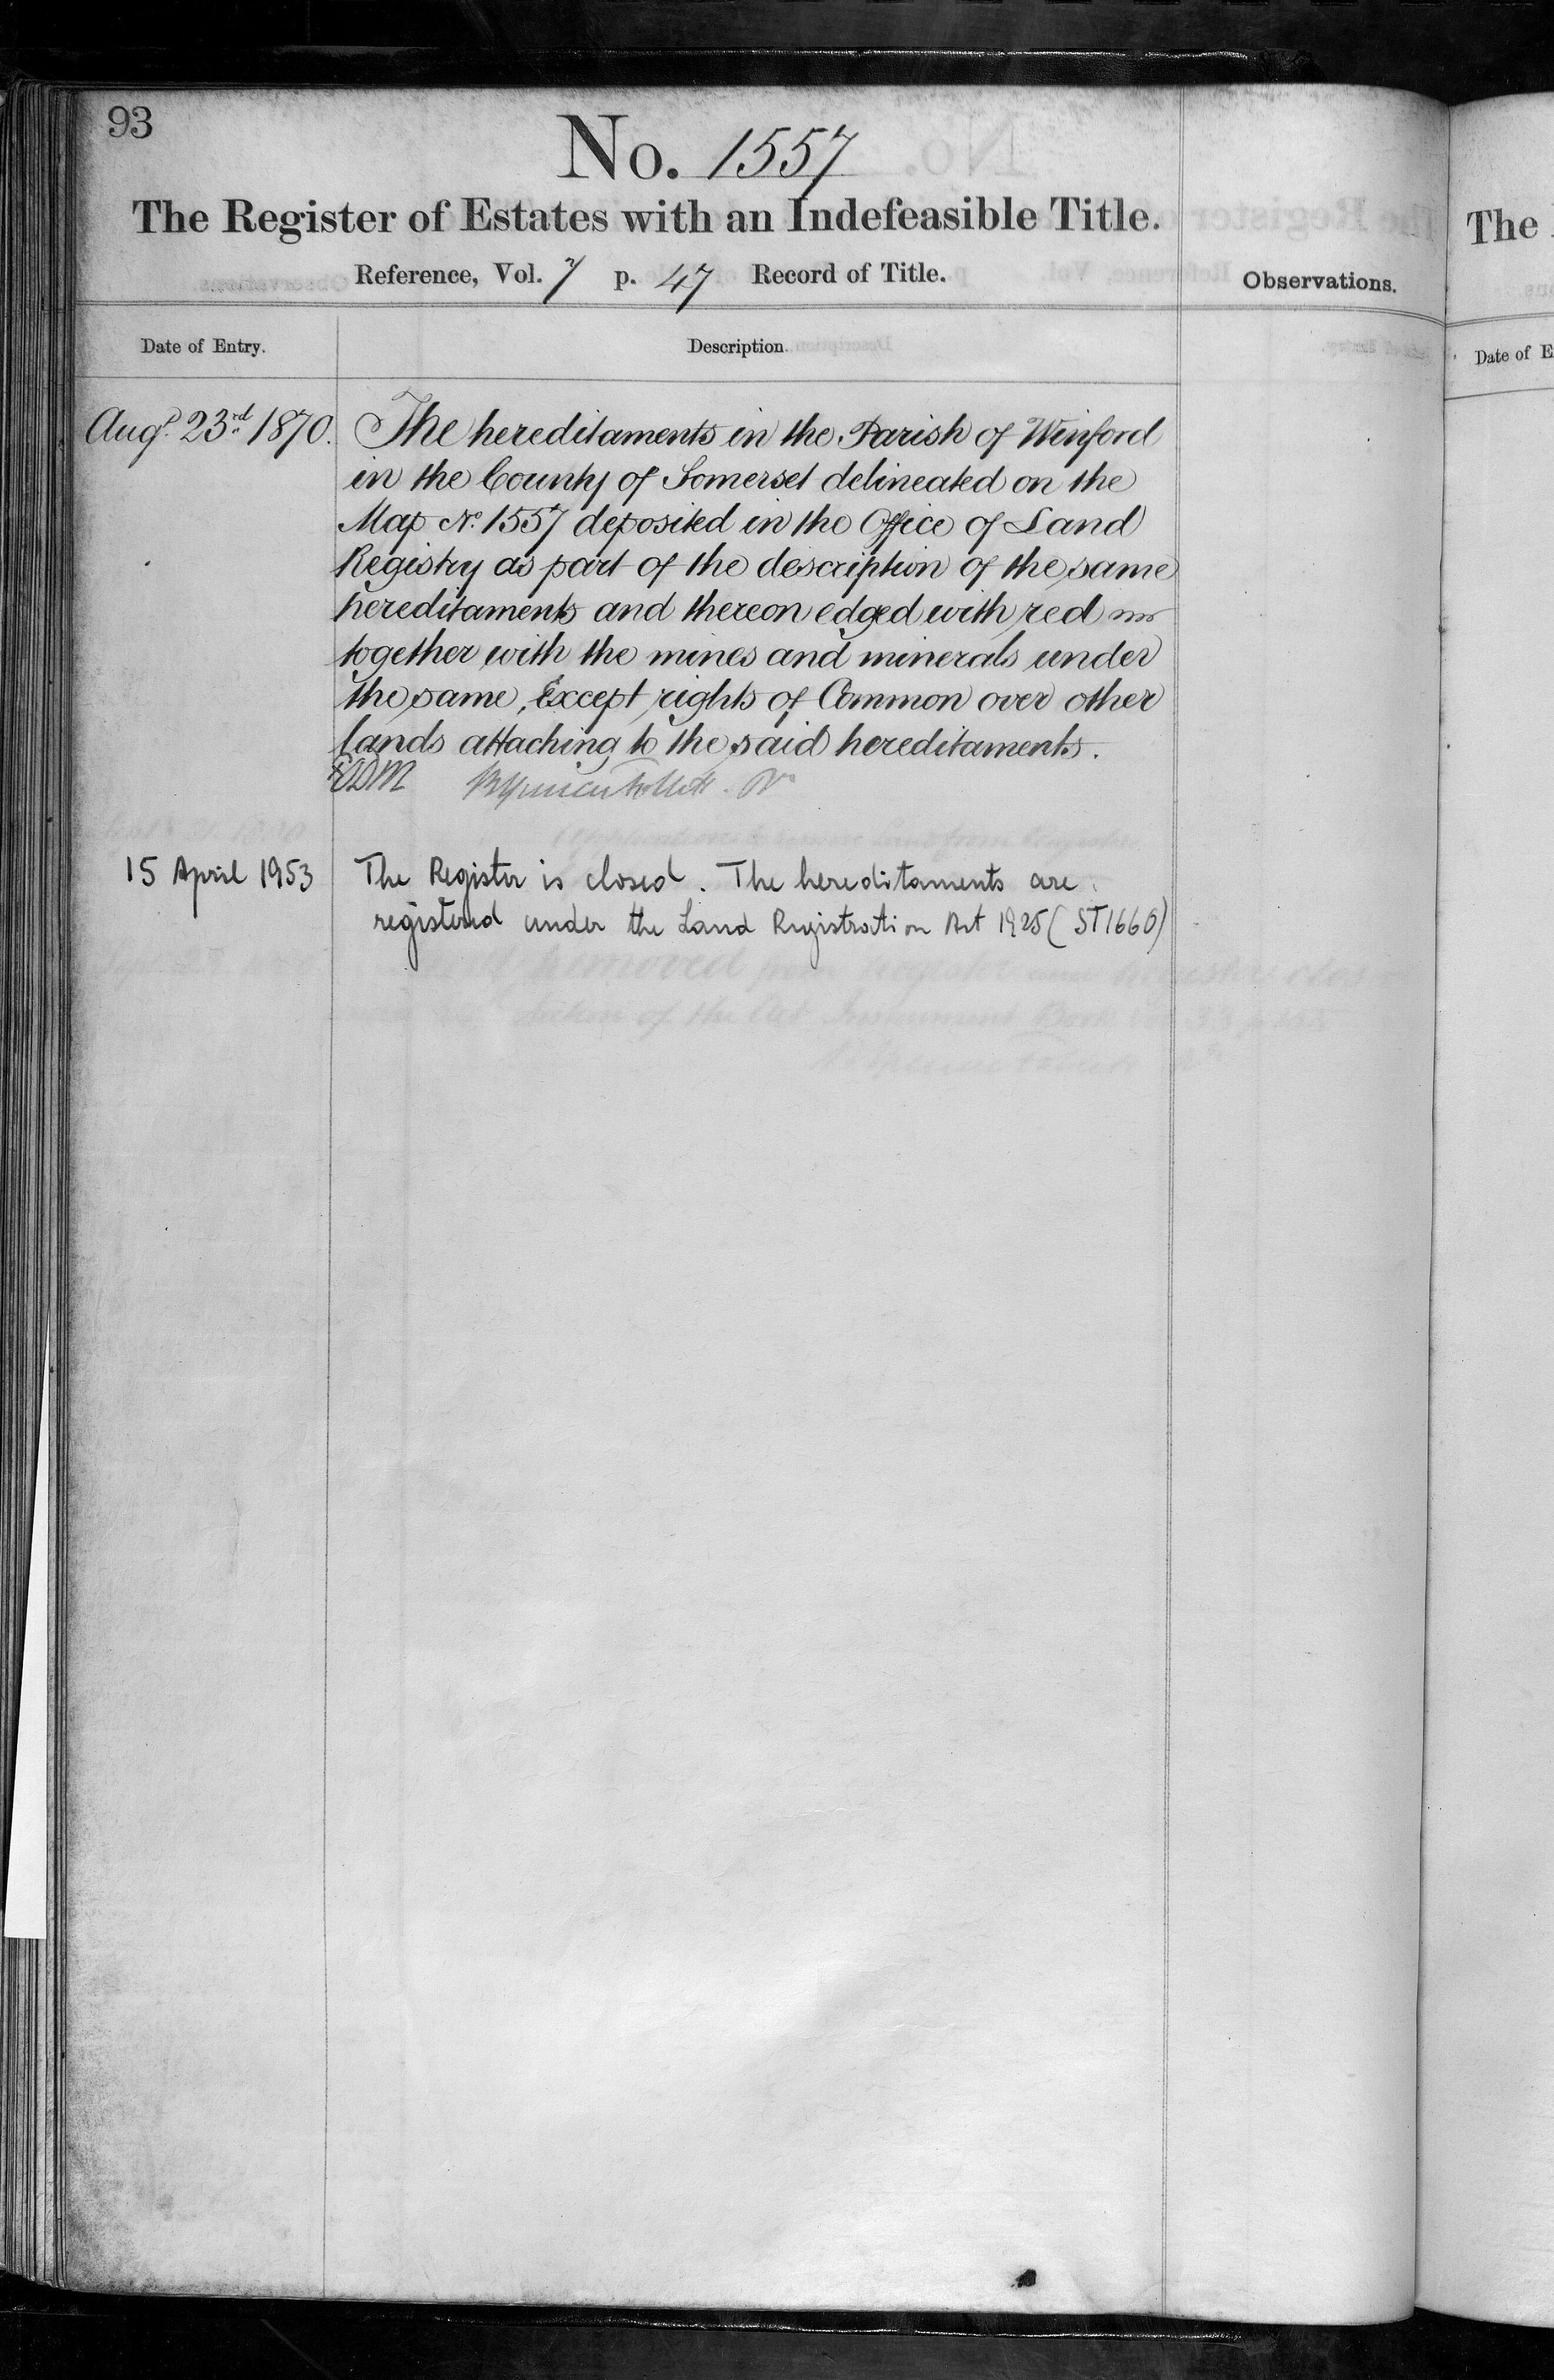 93
No. 1557
The Register of Estates with an Indefeasible Title.
Reference, Vol. 7 p. 47 Record of Title.
Observations.
Date of Entry.
Description.
Augt. 23rd 1870.
The hereditaments in the Parish of Winford
in the County of Somerset delineated on the
Map No. 1557 deposited in the Office of Land
Registry as part of the description of the same
hereditaments and thereon edged with red
together with the mines and minerals under
the same, Except rights of Common over other
lands attaching to the said hereditaments.
15 April 1953
The Register is closed. The hereditaments are
registered under the Land Registration Act 1925 (ST1660)
The
Date of E